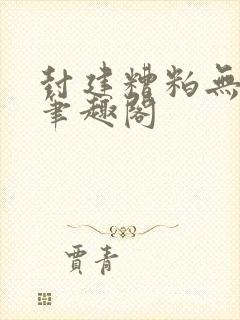 封建糟粕無
筆趣閣
賈青